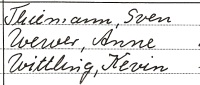 Thiemann, Sven
Werver, Anne
Wittling, Kevin